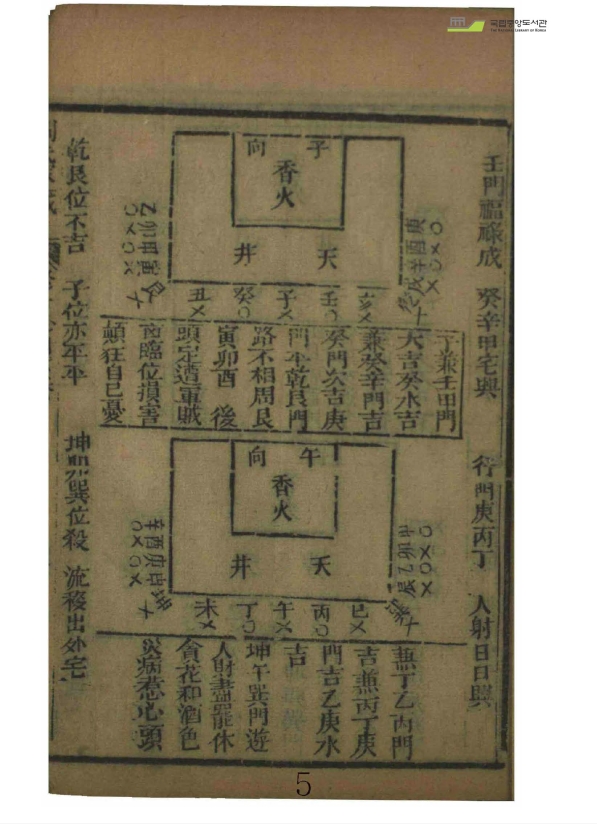 국립중앙도서관
THE NATIONAL LIBRARY OF KOREA
壬門福祿成 癸辛甲宅興 行門庚丙丁 人財日日興
子向
香火
天井
庚酉辛戌
○×○×
亥× 壬○ 子× 癸○ 丑×
艮寅甲卯乙
丁兼壬甲門
大吉癸水吉
兼癸辛門吉
癸門次吉庚
門平乾艮門
路不相周艮
寅卯酉 後
頭定遭軍賊
臨位損害
顛狂自己憂
午向
香火
天井
甲卯乙辰
○×○×
巳× 丙○ 午× 丁○ 未×
坤申庚酉辛
兼丁乙丙門
吉兼丙丁庚
門吉乙庚水
吉
坤午巽門遊
人財盡罷休
貪花和酒色
災病惹心頭
乾艮位不吉 子位亦平平 坤 巽位殺 流移出外宅
5